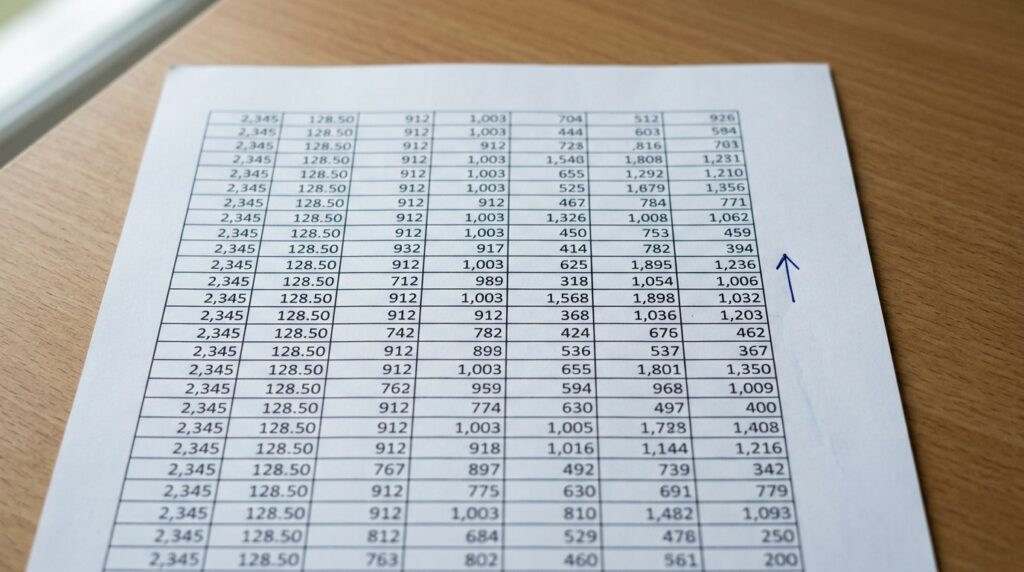 2,345 128.50 912 1,003 704 512 926
2,345 128.50 912 1,003 444 603 594
2,345 128.50 912 912 728 ,816 703
2,345 128.50 912 1,003 1,546 1,808 1,231
2,345 128.50 912 1,003 655 1,292 1,210
2,345 128.50 912 1,003 525 1,679 1,356
2,345 128.50 912 912 467 784 771
2,345 128.50 912 1,003 1,326 1,008 1,062
2,345 128.50 912 1,003 450 753 459
2,345 128.50 932 917 414 782 394
2,345 128.50 912 1,003 625 1,895 1,236
2,345 128.50 712 989 318 1,054 1,006
2,345 128.50 912 1,003 1,568 1,898 1,032
2,345 128.50 912 912 368 1,036 1,203
2,345 128.50 742 782 424 676 462
2,345 128.50 912 899 536 537 367
2,345 128.50 912 1,003 655 1,801 1,350
2,345 128.50 762 959 594 968 1,009
2,345 128.50 912 774 630 497 400
2,345 128.50 912 1,003 1,005 1,728 1,408
2,345 128.50 912 918 1,016 1,144 1,216
2,345 128.50 767 897 492 739 342
2,345 128.50 912 775 630 691 779
2,345 128.50 912 1,003 810 1,482 1,093
2,345 128.50 812 684 529 478 250
2,345 128.50 763 802 460 561 200